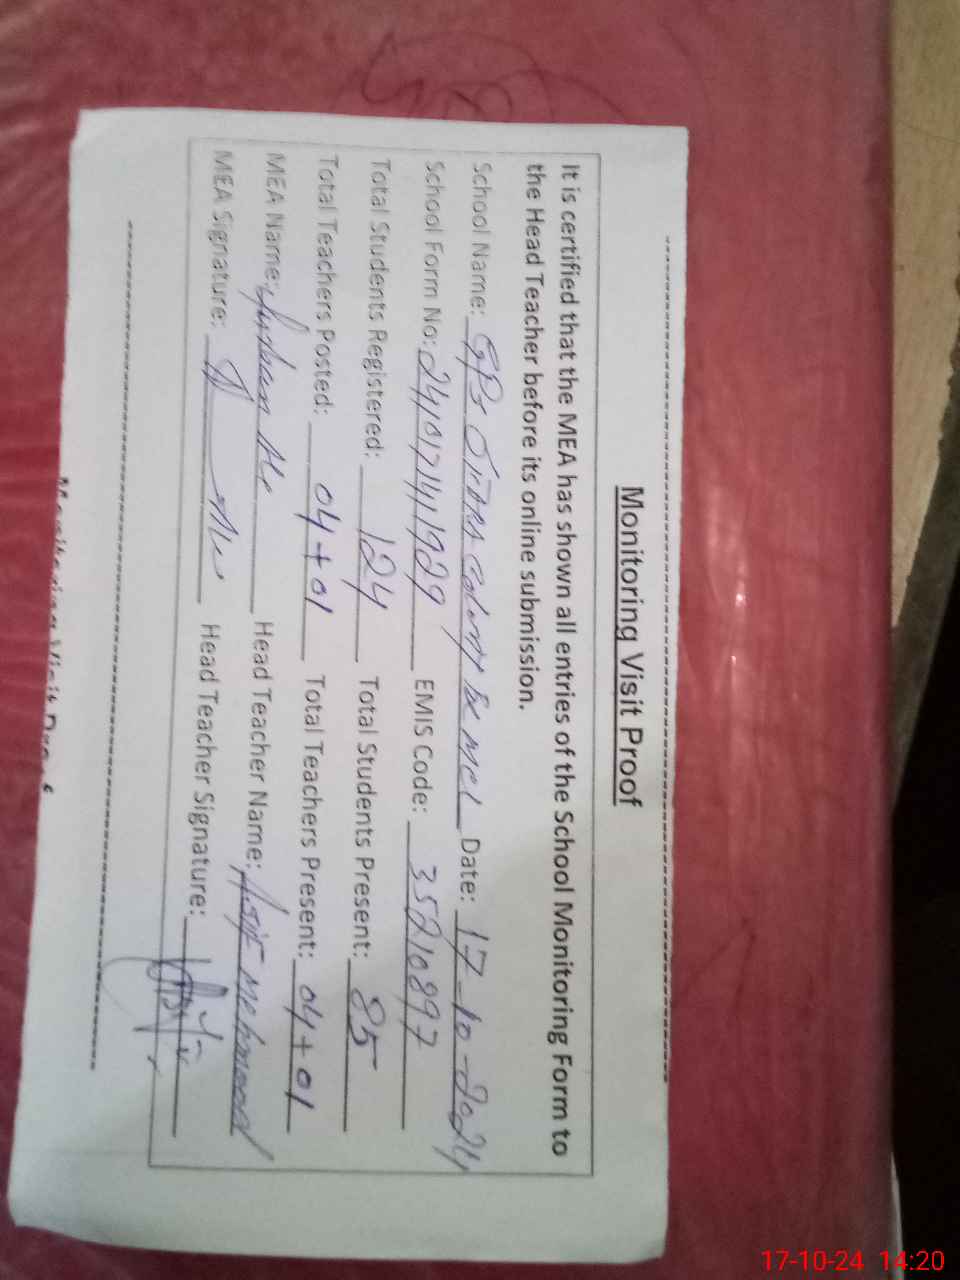 Monitoring Visit Proof
It is certified that the MEA has shown all entries of the School Monitoring Form to
the Head Teacher before its online submission.
School Name: GPS Date: 17-10-2024
School Form No: 241017141929 EMIS Code: 35210897
Total Students Registered: 124 Total Students Present: 85
Total Teachers Posted: 04+01 Total Teachers Present: 04+01
MEA Name: Head Teacher Name: Asif Mehmood
MEA Signature: Head Teacher Signature:
17-10-24 14:20